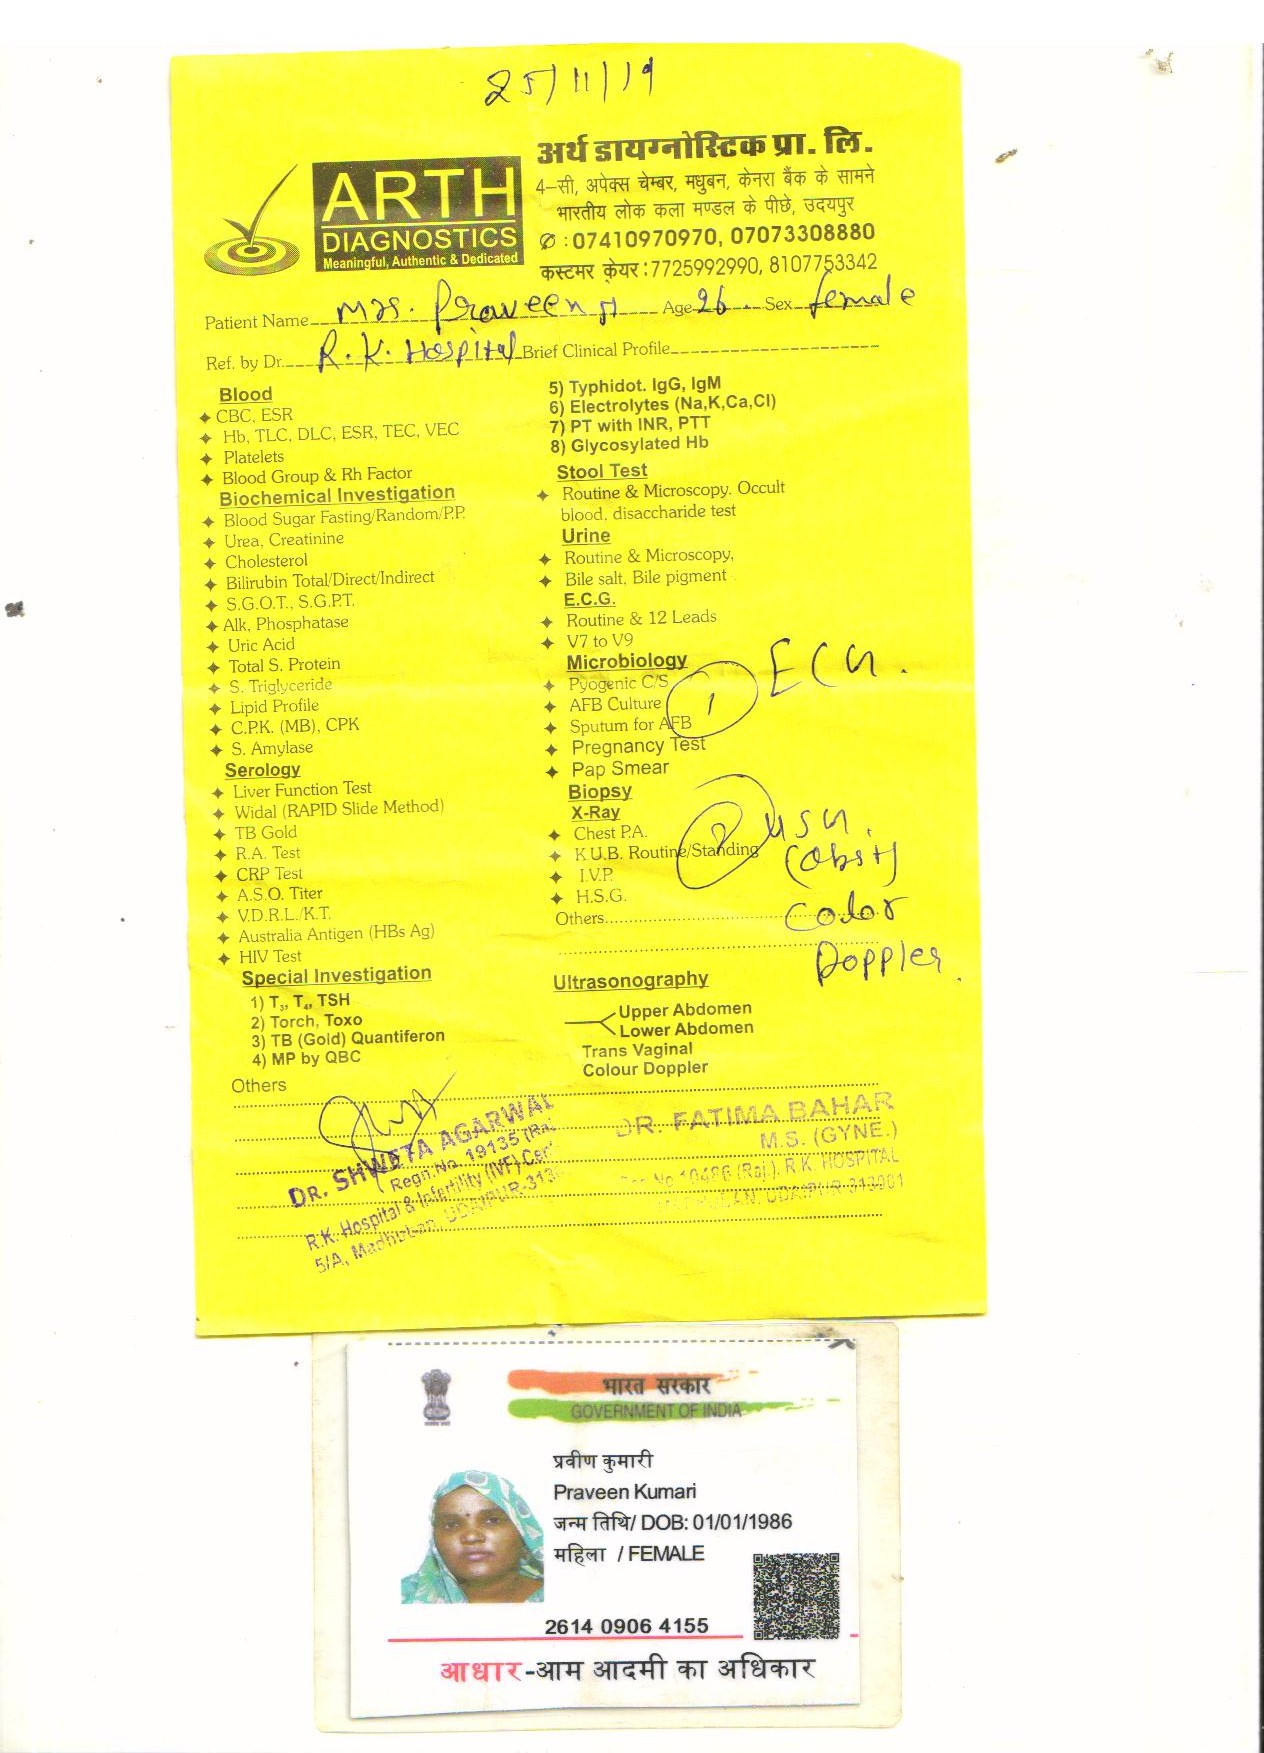 25/11/19
अर्थ डायग्नोस्टिक प्रा. लि.
ARTH
DIAGNOSTICS
Meaningful, Authentic & Dedicated
4-सी, अपेक्स चेम्बर, मधुबन, केनरा बैंक के सामने
भारतीय लोक कला मण्डल के पीछे, उदयपुर
✆ : 07410970970, 07073308880
कस्टमर केयर : 7725992990, 8107753342
Patient Name Mrs. Praveen Age 26 Sex female
Ref. by Dr. R.K. Hospital Brief Clinical Profile
Blood
CBC, ESR
Hb, TLC, DLC, ESR, TEC, VEC
Platelets
Blood Group & Rh Factor
Biochemical Investigation
Blood Sugar Fasting/Random/P.P.
Urea, Creatinine
Cholesterol
Bilirubin Total/Direct/Indirect
S.G.O.T., S.G.P.T.
Alk, Phosphatase
Uric Acid
Total S. Protein
S. Triglyceride
Lipid Profile
C.P.K. (MB), CPK
S. Amylase
Serology
Liver Function Test
Widal (RAPID Slide Method)
TB Gold
R.A. Test
CRP Test
A.S.O. Titer
V.D.R.L./K.T.
Australia Antigen (HBs Ag)
HIV Test
Special Investigation
1) T3, T4, TSH
2) Torch, Toxo
3) TB (Gold) Quantiferon
4) MP by QBC
Others
5) Typhidot. IgG, IgM
6) Electrolytes (Na,K,Ca,Cl)
7) PT with INR, PTT
8) Glycosylated Hb
Stool Test
Routine & Microscopy. Occult
blood, disaccharide test
Urine
Routine & Microscopy,
Bile salt, Bile pigment
E.C.G.
Routine & 12 Leads
V7 to V9
Microbiology
Pyogenic C/S
AFB Culture
Sputum for AFB
Pregnancy Test
Pap Smear
Biopsy
X-Ray
Chest P.A.
K.U.B. Routine/Standing
I.V.P.
H.S.G.
Others
1 ECG.
2 USG.
(Obst)
Color
Doppler.
Ultrasonography
Upper Abdomen
Lower Abdomen
Trans Vaginal
Colour Doppler
DR. SHWETA AGARWAL
Regn.No. 19135 (Raj
R.K. Hospital & Infertility (IVF) Cen
5/A, Madhuban, UDAIPUR-313
DR. FATIMA BAHAR
M.S. (GYNE.)
No 10486 (Raj.), R.K. HOSPITAL
UDAIPUR-313001
भारत सरकार
GOVERNMENT OF INDIA
प्रवीण कुमारी
Praveen Kumari
जन्म तिथि/ DOB: 01/01/1986
महिला / FEMALE
2614 0906 4155
आधार-आम आदमी का अधिकार